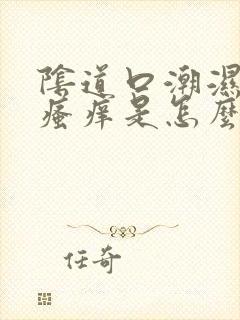 陰道口潮濕
瘙痒是怎麽
任奇